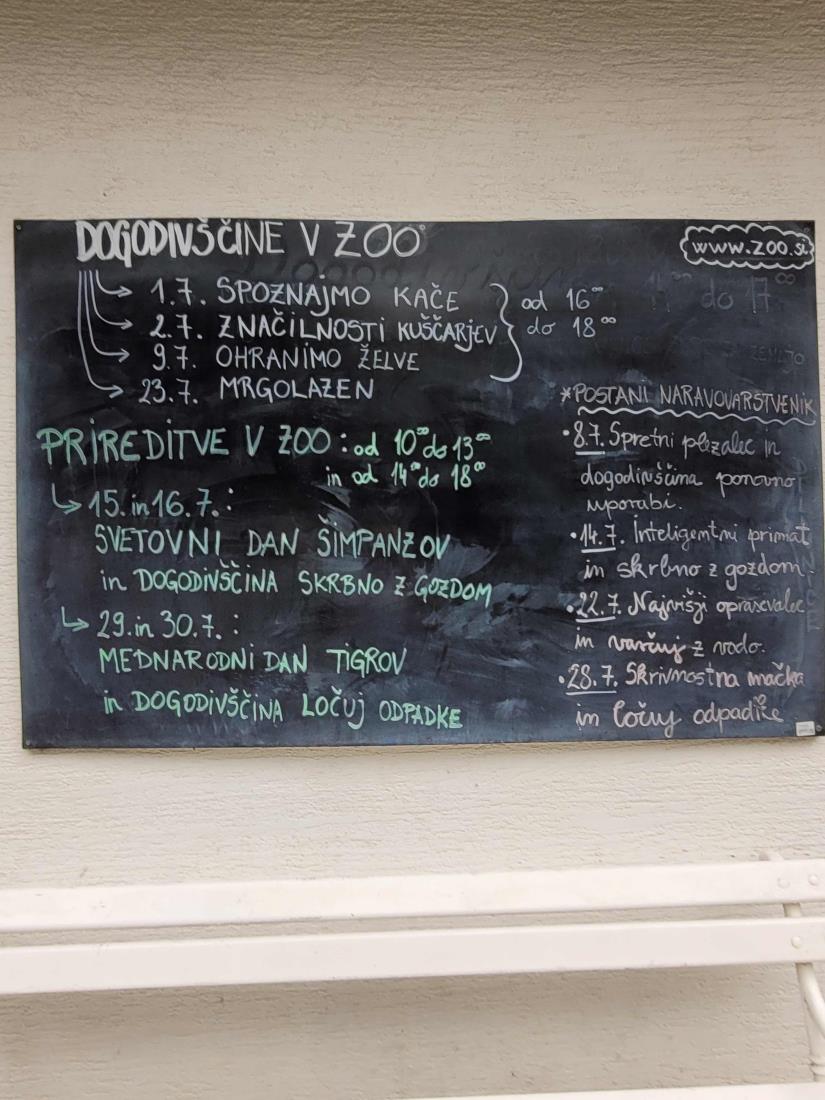 DOGODIVŠČINE V ZOO
www.zoo.si
1.7. SPOZNAJMO KAČE
2.7. ZNAČILNOSTI KUŠČARJEV
9.7. OHRANIMO ŽELVE
23.7. MRGOLAZEN
od 16⁰⁰
do 18⁰⁰
PRIREDITVE V ZOO: od 10⁰⁰ do 13⁰⁰
in od 14⁰⁰ do 18⁰⁰
15. in 16.7.:
SVETOVNI DAN ŠIMPANZOV
in DOGODIVŠČINA SKRBNO Z GOZDOM
29. in 30.7.:
MEDNARODNI DAN TIGROV
in DOGODIVŠČINA LOČUJ ODPADKE
*POSTANI NARAVOVARSTVENIK
• 8.7. Spretni plezalec in
dogodivščina ponovno
uporabi.
• 14.7. Inteligentni primat
in skrbno z gozdom
• 22.7. Najvišji opraševalec
in varčuj z vodo.
• 28.7. Skrivnostna mačka
in ločuj odpadke